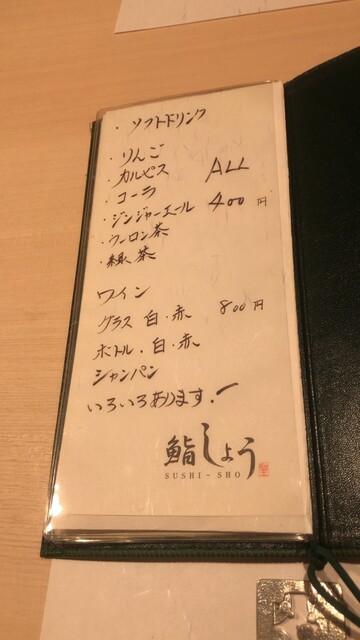 ・ソフトドリンク
・りんご
・カルピス
・コーラ
・ジンジャーエール
・ウーロン茶
・緑茶
ALL
400円
ワイン
グラス 白・赤 800円
ボトル・白・赤
シャンパン
いろいろあります!
鮨しょう
SUSHI-SHO